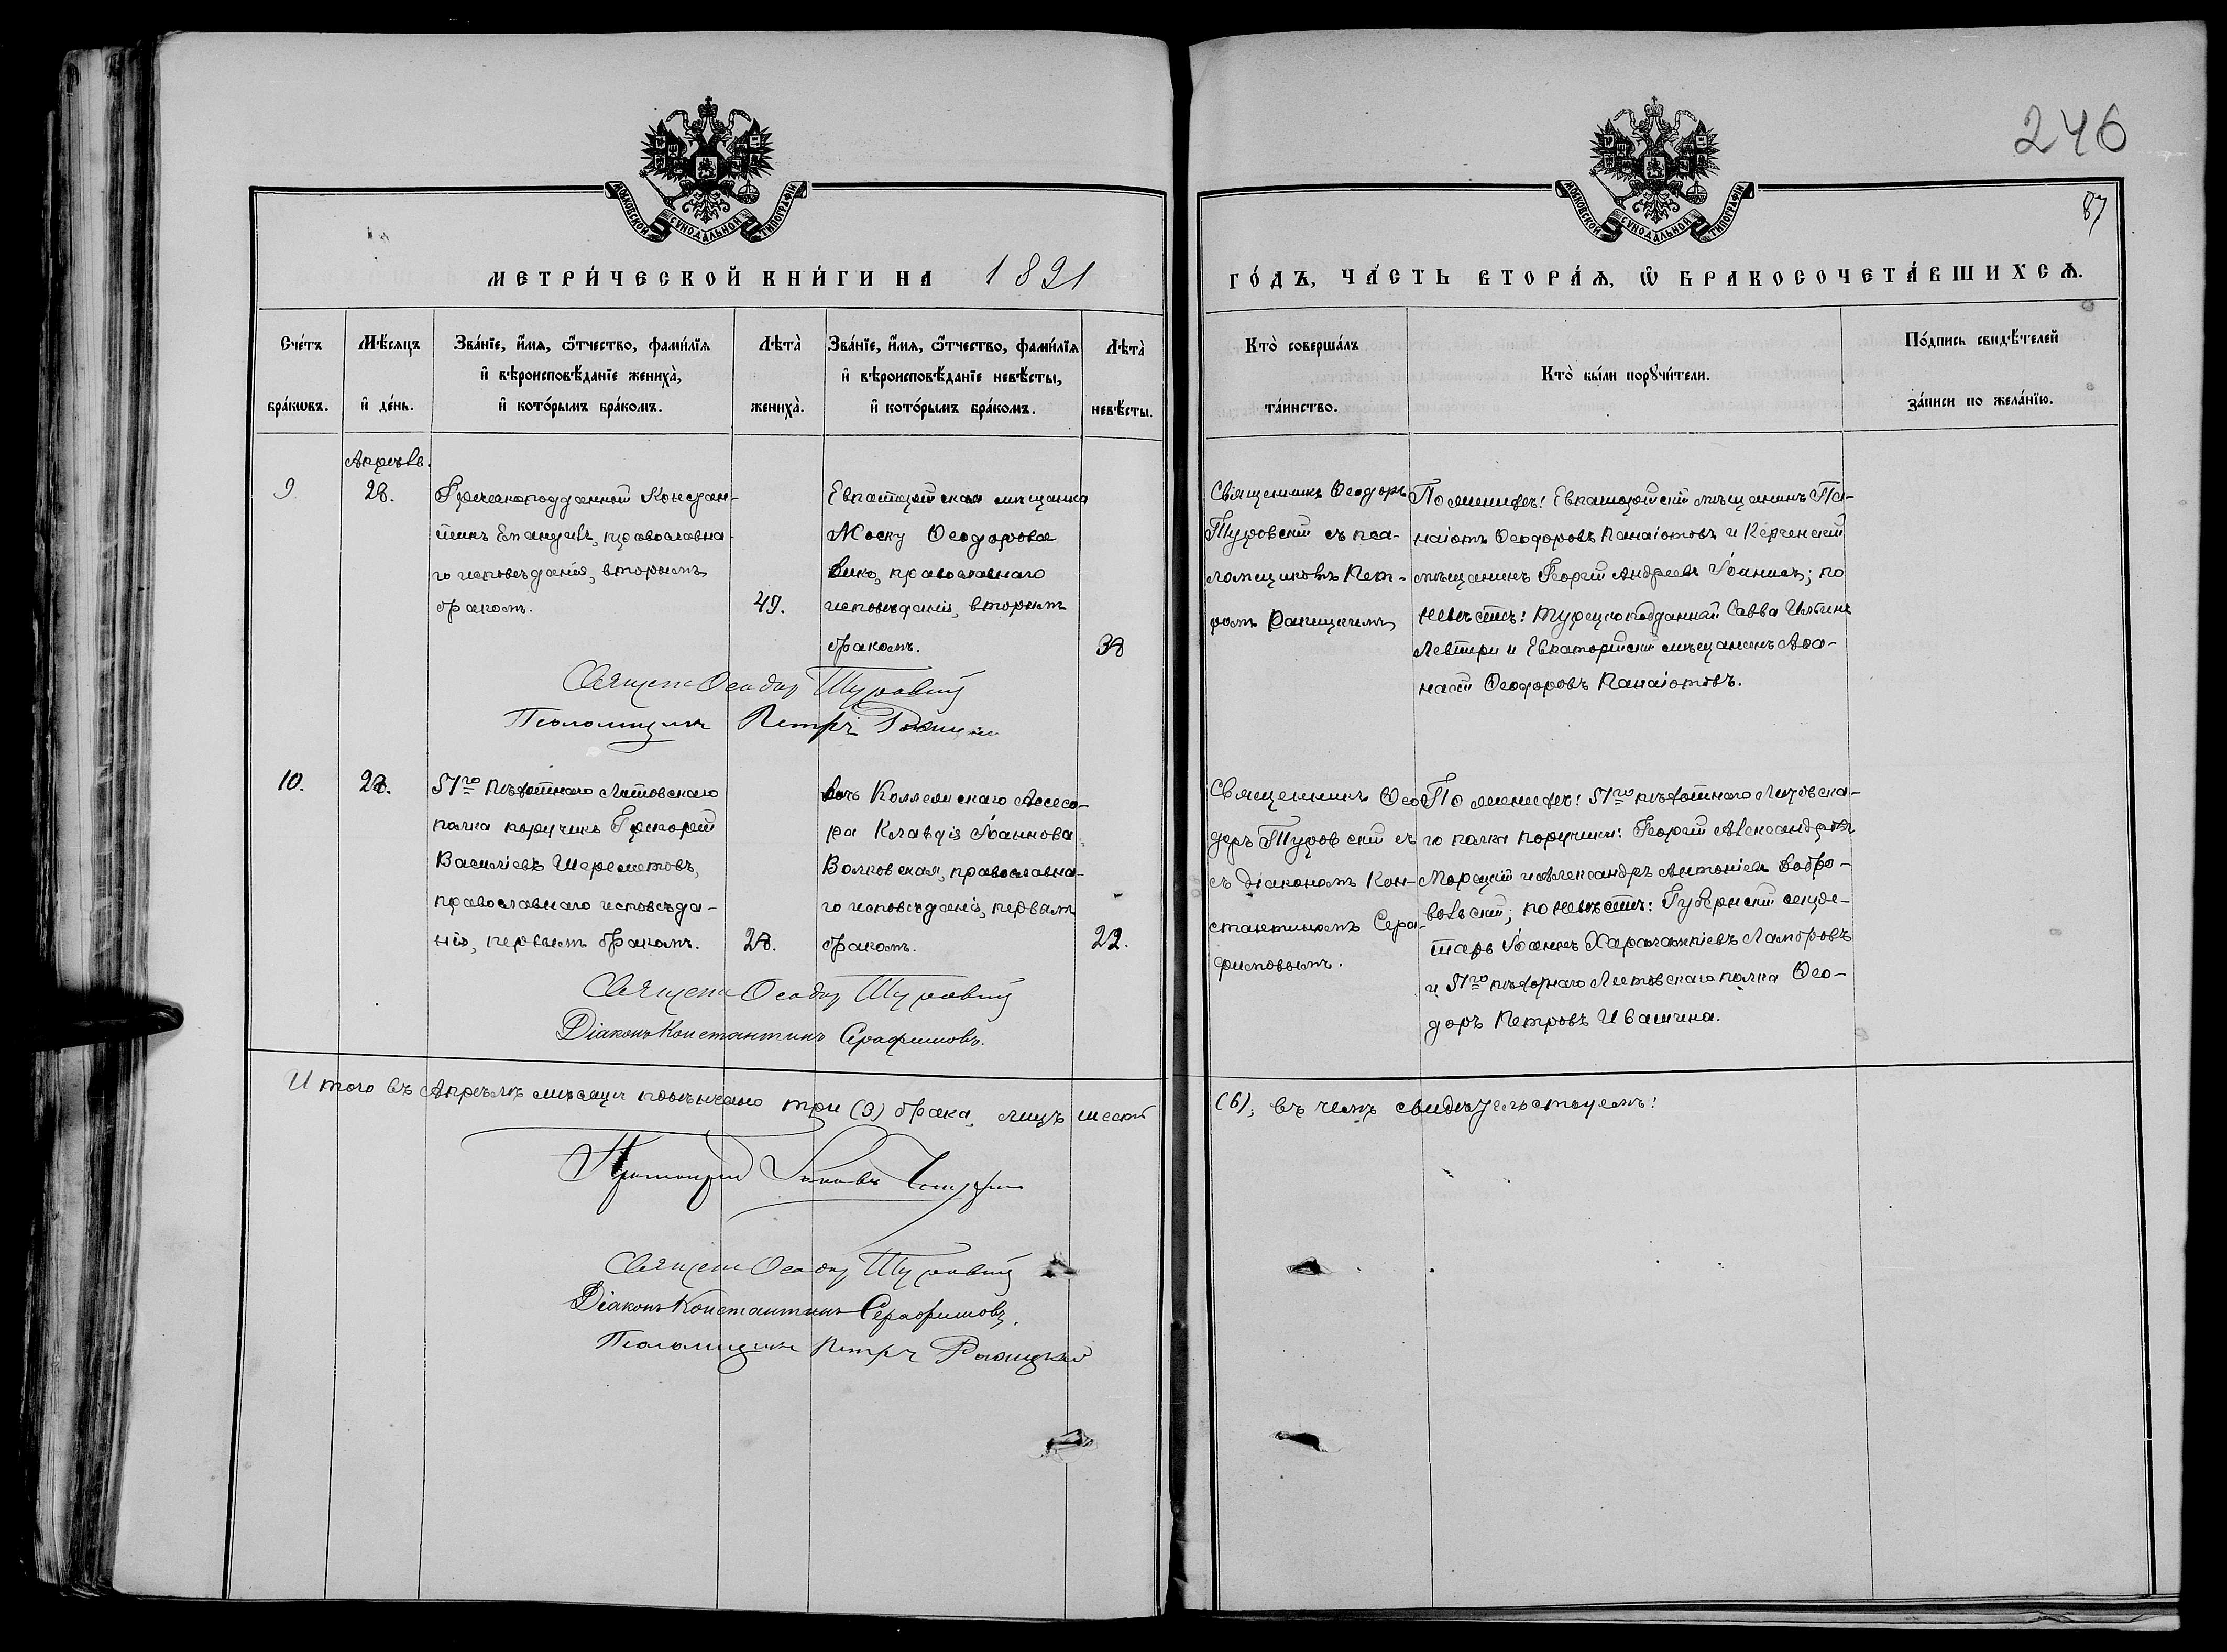 246
87
МОСКОВСКОЙ СѴНОДАЛЬНОЙ ТИПОГРАФІИ
МОСКОВСКОЙ СѴНОДАЛЬНОЙ ТИПОГРАФІИ
МЕТРИ́ЧЕСКОЙ КНИ́ГИ НА 1891
ГО́ДЪ, ЧА́СТЬ ВТОРА́Ѧ, Ѿ БРАКОСОЧЕТА́ВШИХСѦ.
Сче́тъ бра́кѡвъ.
Мѣ́сяцъ и҆ де́нь.
Зва́нїе, и҆́мя, ѻ҆́тчество, фами́лїя
и҆ вѣроисповѣ́данїе жениха̀,
и҆ кото́рымъ бра́комъ.
Лѣта̀ жениха̀.
Зва́нїе, и҆́мя, ѻ҆́тчество, фами́лїя
и҆ вѣроисповѣ́данїе невѣ́сты,
и҆ кото́рымъ бра́комъ.
Лѣта̀ невѣ́сты.
Кто̀ соверша́лъ
та́инство.
Кто̀ бы́ли порꙋчи́тели.
По́дпись свидѣ́телей
за́писи по жела́нїю.
Апрѣль.
9.
28.
Грекоподданный Констан-
тинъ, православна-
го исповѣданія, вторымъ
бракомъ.
49.
Евпаторійская мѣщанка
Ѳеодорова
православнаго
исповѣданія, вторымъ
бракомъ.
38
Священникъ Ѳеодоръ
Туровскій съ пса-
ломщикомъ Пет-
ромъ
По женихѣ: Евпаторійскій мѣщанинъ Па-
наіотъ Ѳеодоровъ Панаіотовъ и Керченскій
мѣщанинъ Георгій Андреевъ; по
невѣстѣ: турецкоподданный Савва
Левтери и Евпаторійскій мѣщанинъ Аѳа-
насій Ѳеодоровъ Панаіотовъ.
Священ Ѳеодор Туровскій
Псаломщикъ Петръ
10.
28.
51го пѣхотнаго Литовскаго
полка поручикъ Григорій
Василіевъ Шереметовъ,
православнаго исповѣда-
нія, первымъ бракомъ.
28.
дочь Коллежскаго Ассесо-
ра Клавдія Іоаннова
Волковская, православна-
го исповѣданія, первымъ
бракомъ.
22.
Священникъ Ѳео-
доръ Туровскій съ
съ діакономъ Кон-
стантиномъ Сера-
фимовымъ.
По женихѣ: 51го пѣхотнаго Литовска-
го полка поручики: Георгій Александровъ
Морацкій и Александръ Антоніевъ Добро-
вольскій; по невѣстѣ: Губернскій секре-
тарь Іоаннъ Харалампіевъ Ламбровъ
и 51го пѣхотнаго Литовскаго полка Ѳео-
доръ Петровъ Ивашина.
Священ Ѳеодор Туровскій
Діаконъ Константинъ Серафимовъ.
Итого въ Апрѣлѣ мѣсяцѣ повѣнчано три (3) брака, лицъ шесть
(6), въ чемъ свидѣтельствуемъ:
Протоіерей Іаковъ
Священ Ѳеодор Туровскій
Діаконъ Константинъ Серафимовъ.
Псаломщикъ Петръ